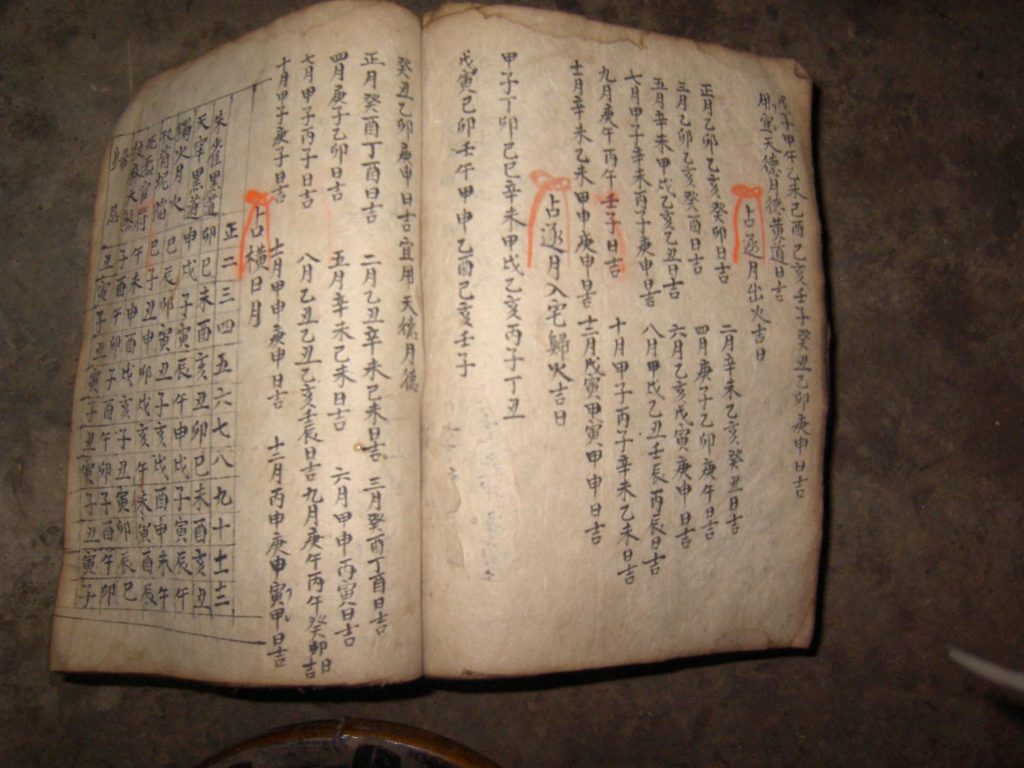 戊子甲午乙未己酉己亥壬子癸丑乙卯庚申日吉
用宜天德月德黄道日吉
占逐月出火吉日
正月乙卯乙亥癸卯日吉 二月辛未乙亥癸丑日吉
三月乙卯乙亥癸酉日吉 四月庚子乙卯庚午日吉
五月辛未甲戌乙亥乙丑日吉 六月乙亥戊寅庚申日吉
七月甲子辛未丙子庚申日吉 八月甲戌乙丑壬辰丙辰日吉
九月庚午丙午壬子日吉 十月甲子丙子辛未乙未日吉
十一月辛未乙未甲申庚申日吉 十二月戊寅甲寅甲申日吉
占逐月入宅歸火吉日
甲子丁卯己巳辛未甲戌乙亥丙子丁丑
戊寅己卯壬午甲申乙酉己亥壬子
癸丑乙卯庚申日吉宜用天德月德
正月癸酉丁酉日吉 二月乙丑辛未己未日吉 三月癸酉丁酉日吉
四月庚子乙卯日吉 五月辛未己未日吉 六月甲申丙寅日吉
七月甲子丙子日吉 八月乙丑乙亥壬辰日吉 九月庚午丙午癸卯日吉
十月甲子庚子日吉 十一月甲申庚申日吉 十二月丙申庚申寅甲日吉
占橫日月
正二三四五六七八九十十一十二
朱雀黑道卯巳未酉亥丑卯巳未酉亥丑
天牢黑道申戌子寅辰午申戌子寅辰午
獨火月火巳辰卯寅丑子亥戌酉申未午